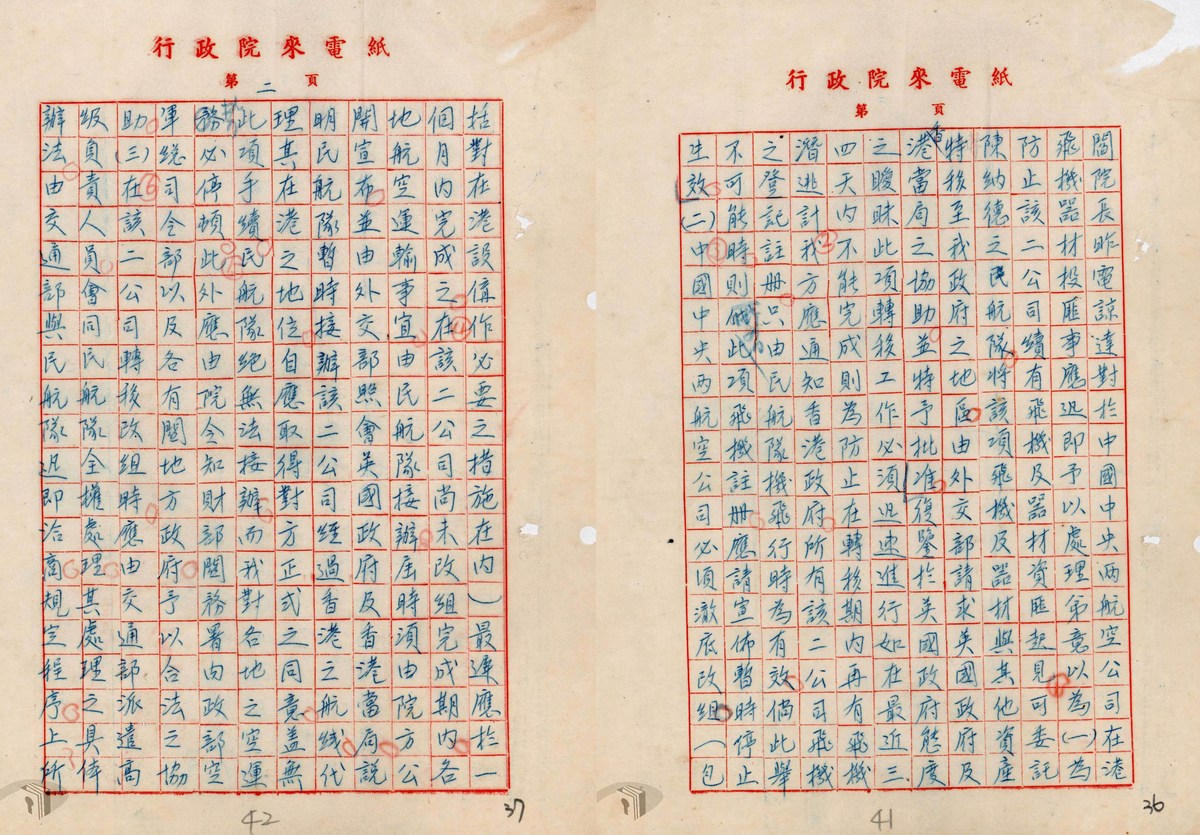 行政院來電紙
第　頁
閻院長昨電諒達對於中國中央兩航空公司在港
飛機器材投匪事應迅即予以處理第意以為(一)為
防止該二公司續有飛機及器材資匪起見可委託
陳納德之民航隊將該項飛機及器材與其他資產
特移至我政府之地區由外交部請求英國政府及
香港當局之協助並特予批准復鑒於英國政府態度
之曖昧此項轉移工作必須迅速進行如在最近三
四天內不能完成則為防止在轉移期內再有飛機
潛逃計我方應通知香港政府所有該二公司飛機
之登記註册只由民航隊機飛行時為有效倘此舉
不可能時則此項飛機註册應請宣佈暫時停止
生效(二)中國中央兩航空公司必須澈底改組(包
41
36
行政院來電紙
第二頁
括對在港設備作必要之措施在內)最遲應於一
個月內完成之在該二公司尚未改組完成期內各
地航空運輸事宜由民航隊接辦屆時須由院方公
開宣布並由外交部照會英國政府及香港當局說
明民航隊暫時接辦該二公司經過香港之航綫代
理其在港之地位自應取得對方正式之同意蓋無
此項手續民航隊絕無法接辦而我對各地之空運
務必停頓此外應由院令知財部關務署向政部空
軍總司令部以及各有關地方政府予以合法之協
助(三)在該二公司轉移改組時應由交通部派遣高
級負責人員會同民航隊全權處理其處理之具体
辦法由交通部與民航隊迅即洽商規定程序上所
42
37